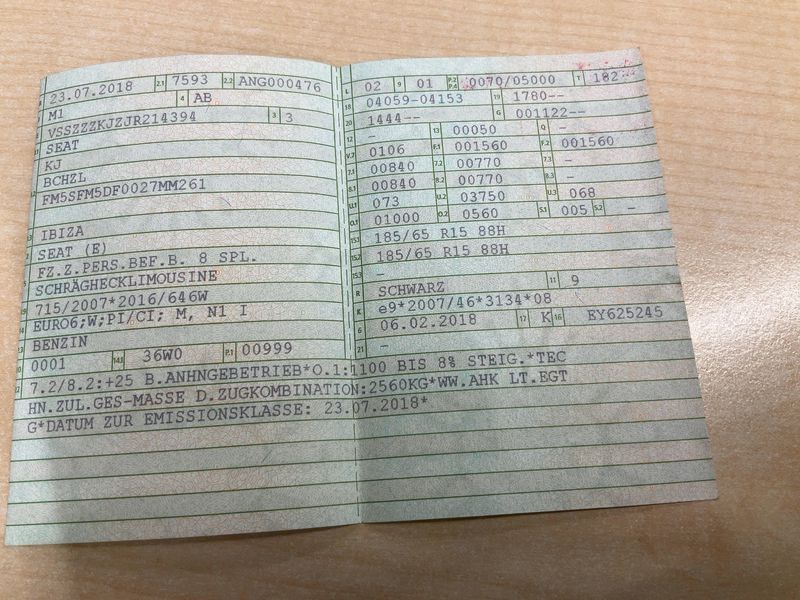 23.07.2018 2.1 7593 2.2 ANG000476
M1 4 AB
VSSZZZKJZJR214394 3 3
SEAT
KJ
BCHZL
FM5SFM5DF0027MM261
IBIZA
SEAT (E)
FZ.Z.PERS.BEF.B. 8 SPL.
SCHRÄGHECKLIMOUSINE
715/2007*2016/646W
EURO6;W;PI/CI; M, N1 I
BENZIN
0001 14.1 36W0 P.1 00999
L 02 9 01 P.2 P.4 0070/05000 T 182
18 04059-04153 19 1780--
20 1444-- G 001122--
12 - 13 00050 Q -
V.7 0106 F.1 001560 F.2 001560
7.1 00840 7.2 00770 7.3 -
8.1 00840 8.2 00770 8.3 -
U.1 073 U.2 03750 U.3 068
O.1 01000 O.2 0560 S.1 005 S.2 -
15.1 185/65 R15 88H
15.2 185/65 R15 88H
15.3 -
R SCHWARZ 11 9
K e9*2007/46*3134*08
6 06.02.2018 17 K 16 EY625245
21 -
7.2/8.2:+25 B.ANHNGEBETRIEB*O.1:1100 BIS 8% STEIG.*TEC
HN.ZUL.GES-MASSE D.ZUGKOMBINATION:2560KG*WW.AHK LT.EGT
G*DATUM ZUR EMISSIONSKLASSE: 23.07.2018*